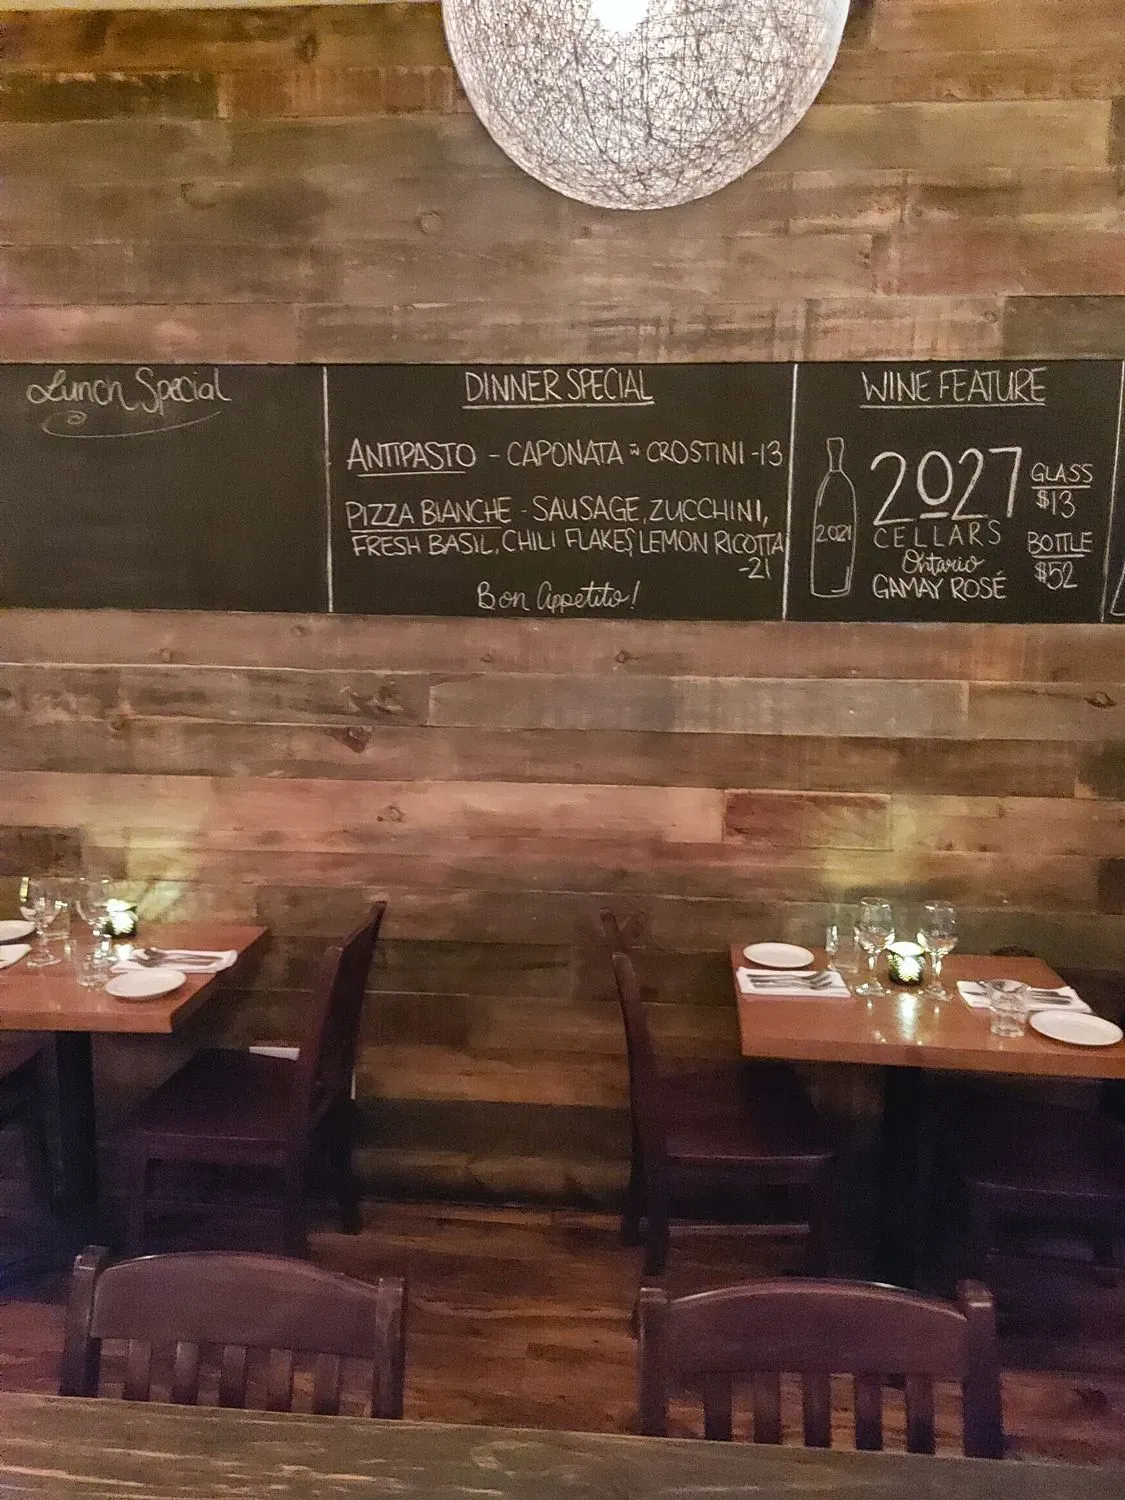 Lunch Special
DINNER SPECIAL
ANTIPASTO - CAPONATA w CROSTINI -13
PIZZA BIANCHE - SAUSAGE, ZUCCHINI,
FRESH BASIL, CHILI FLAKES, LEMON RICOTTA
-21
Bon Appetito!
WINE FEATURE
2021
2027
CELLARS
Ontario
GAMAY ROSÉ
GLASS
$13
BOTTLE
$52